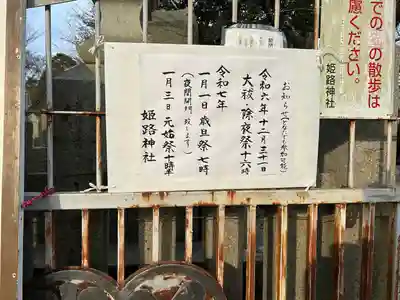 お知らせ(どなたでも参加可能)
令和六年十二月三十一日
大祓・除夜祭十六時
令和七年
一月一日 歳旦祭 七時
(夜間開門致します)
一月三日 元始祭 十時半
姫路神社
での
の散歩は
慮ください。
姫路神社